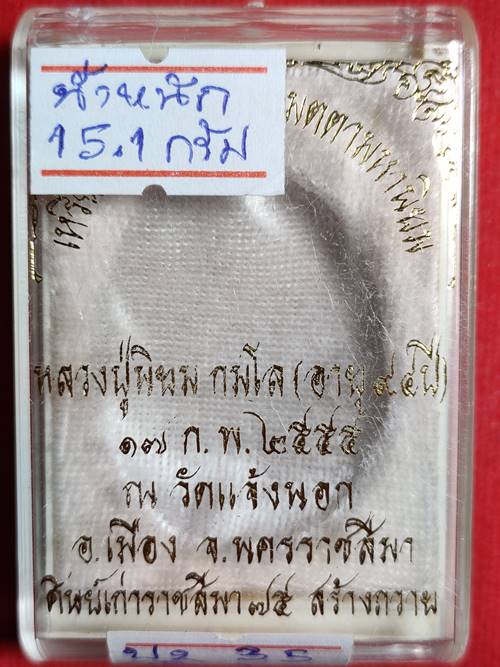 น้ำหนัก
15.1 กรัม
เหรี
เมตตามหานิยม
หลวงปู่นิยม กมโล (อายุ ๙๔ ปี)
๑๗ ก.พ. ๒๕๕๕
ณ วัดแจ้งนอก
อ.เมือง จ.นครราชสีมา
ศิษย์เก่าราชสีมา ๗๕ สร้างถวาย
35